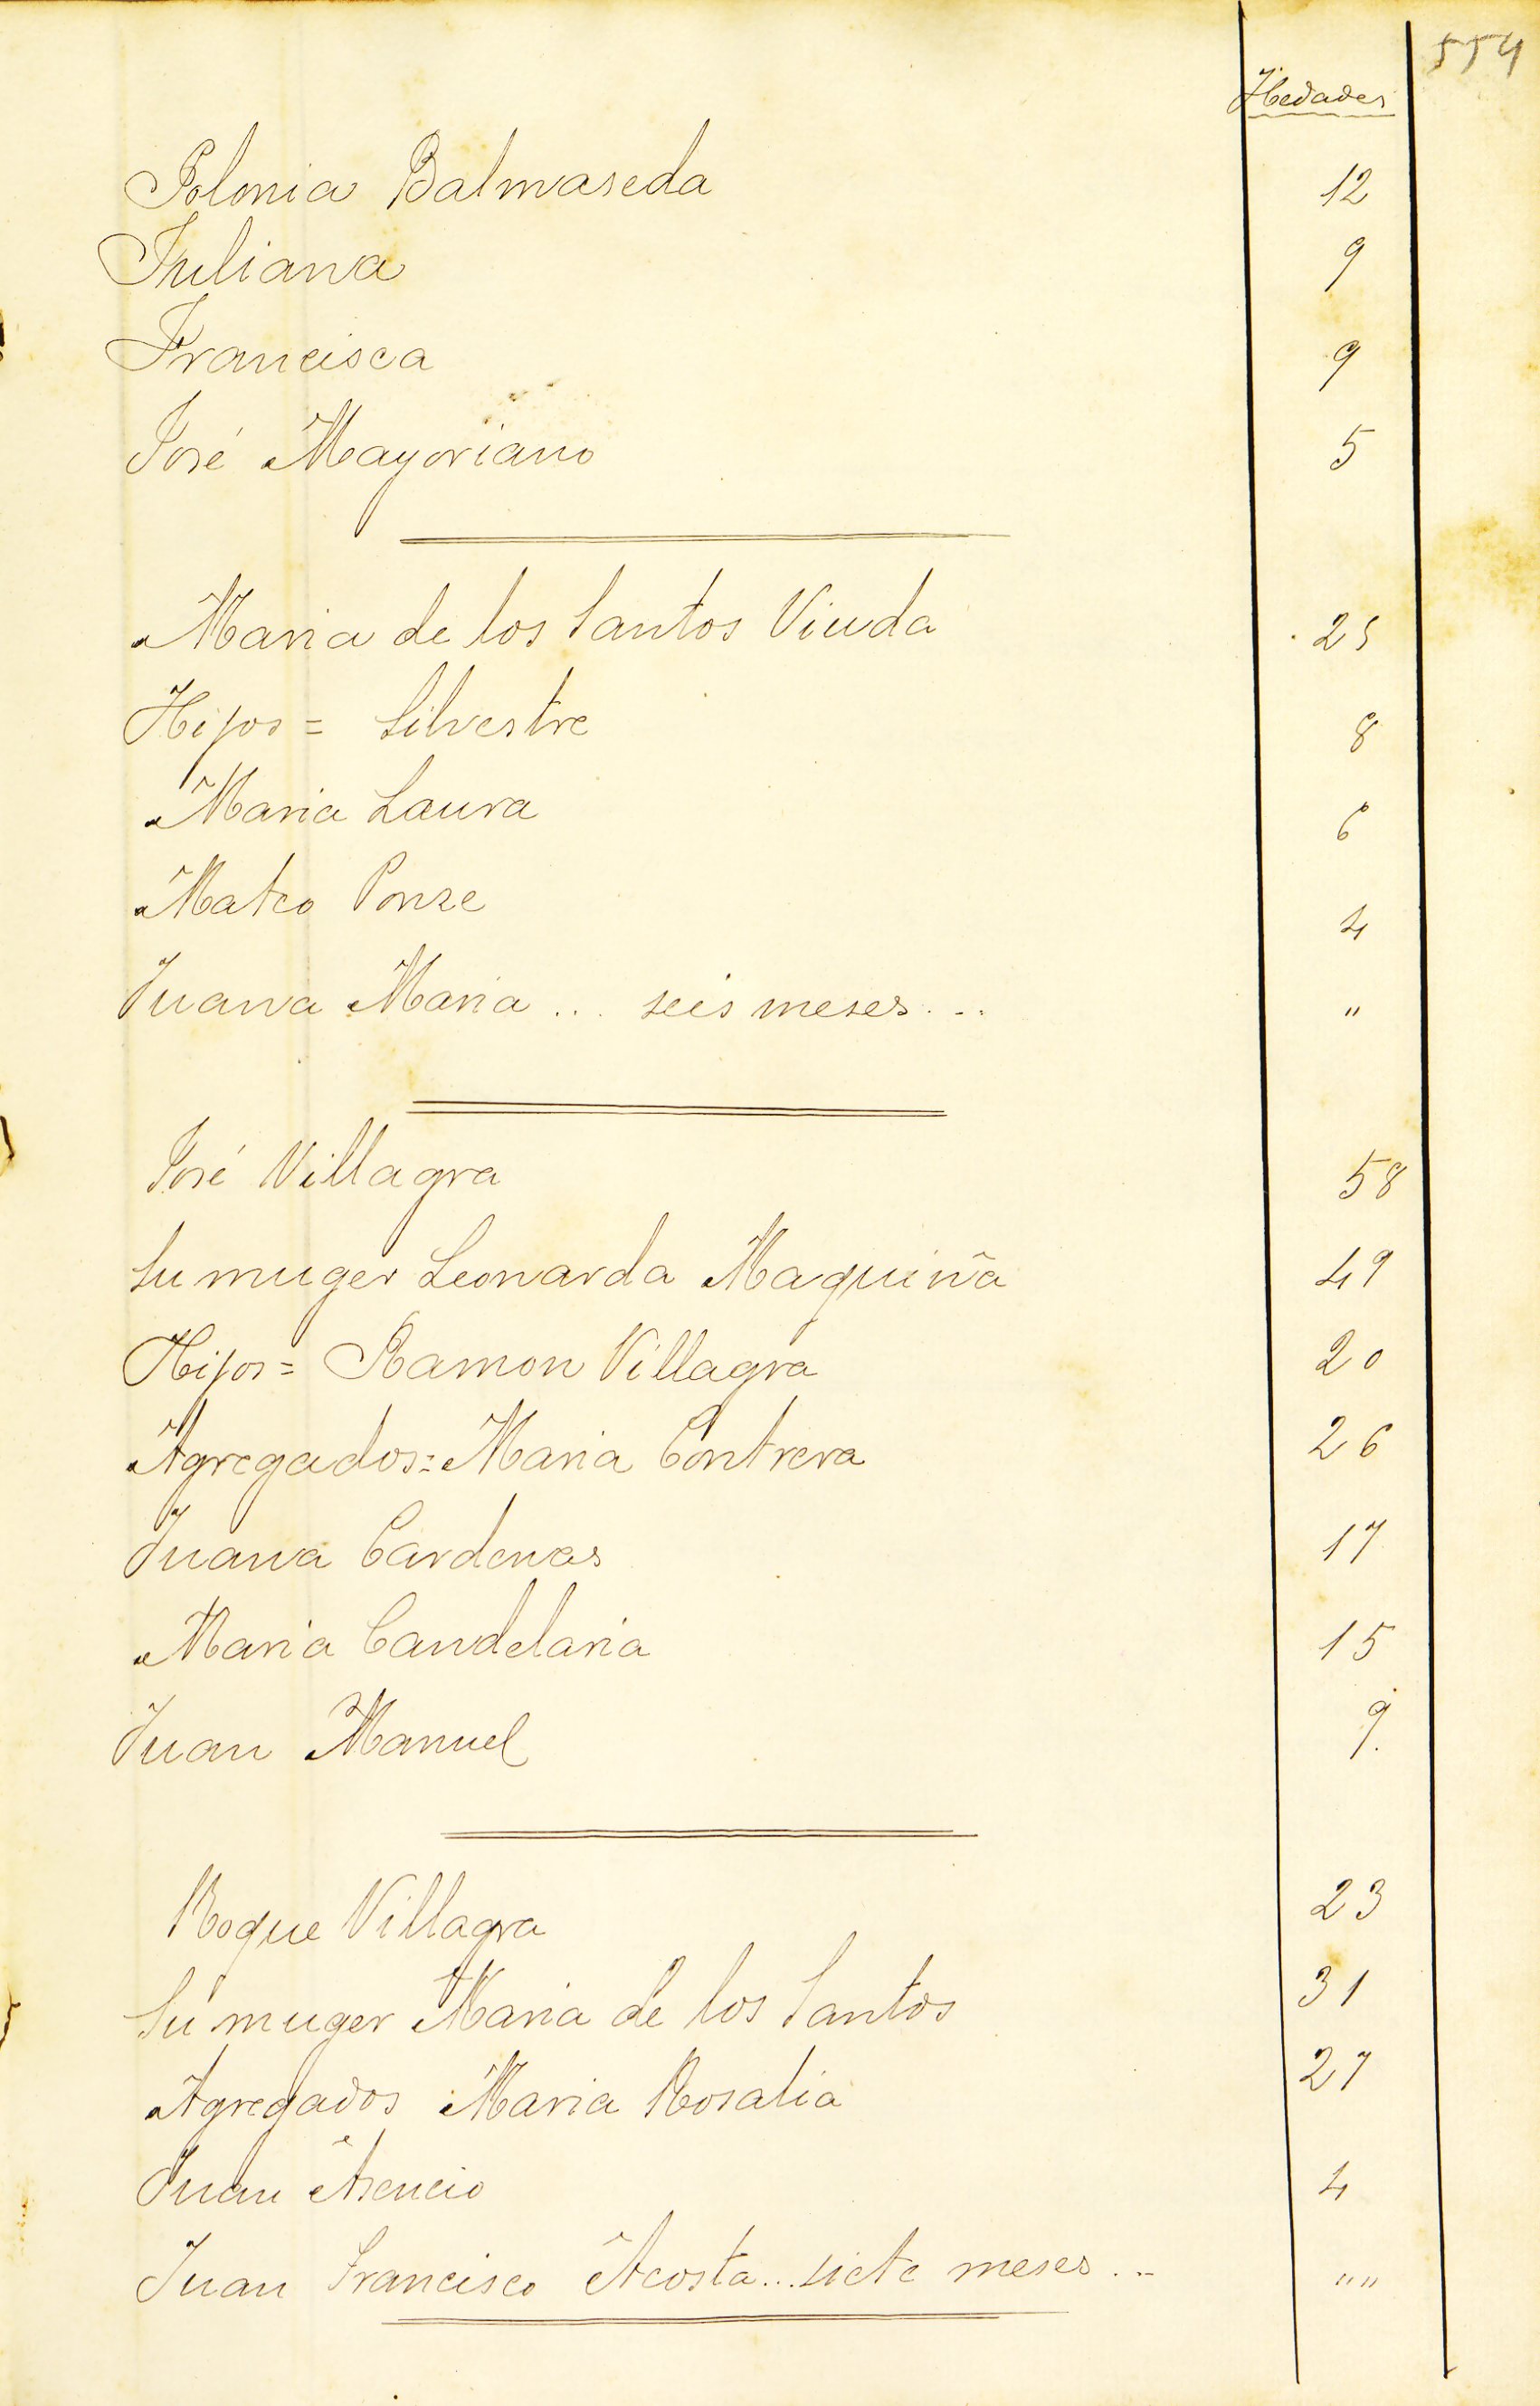 554
Hedades
Polonia Balmaseda 12
Juliana 9
Francisca 9
José Mayoriano 5
Maria de los Santos Viuda 25
Hijos = Silvestre 8
Maria Laura 6
Mateo Ponze 4
Juana Maria... seis meses... "
José Villagra 58
Su muger Leonarda Maquiña 49
Hijos = Ramon Villagra 20
Agregados = Maria Contrera 26
Juana Cardenas 17
Maria Candelaria 15
Juan Manuel 9.
Roque Villagra 23
Su muger Maria de los Santos 31
Agregados Maria Rosalia 27
Juan Asencio 4
Juan Francisco Acosta... siete meses... ""